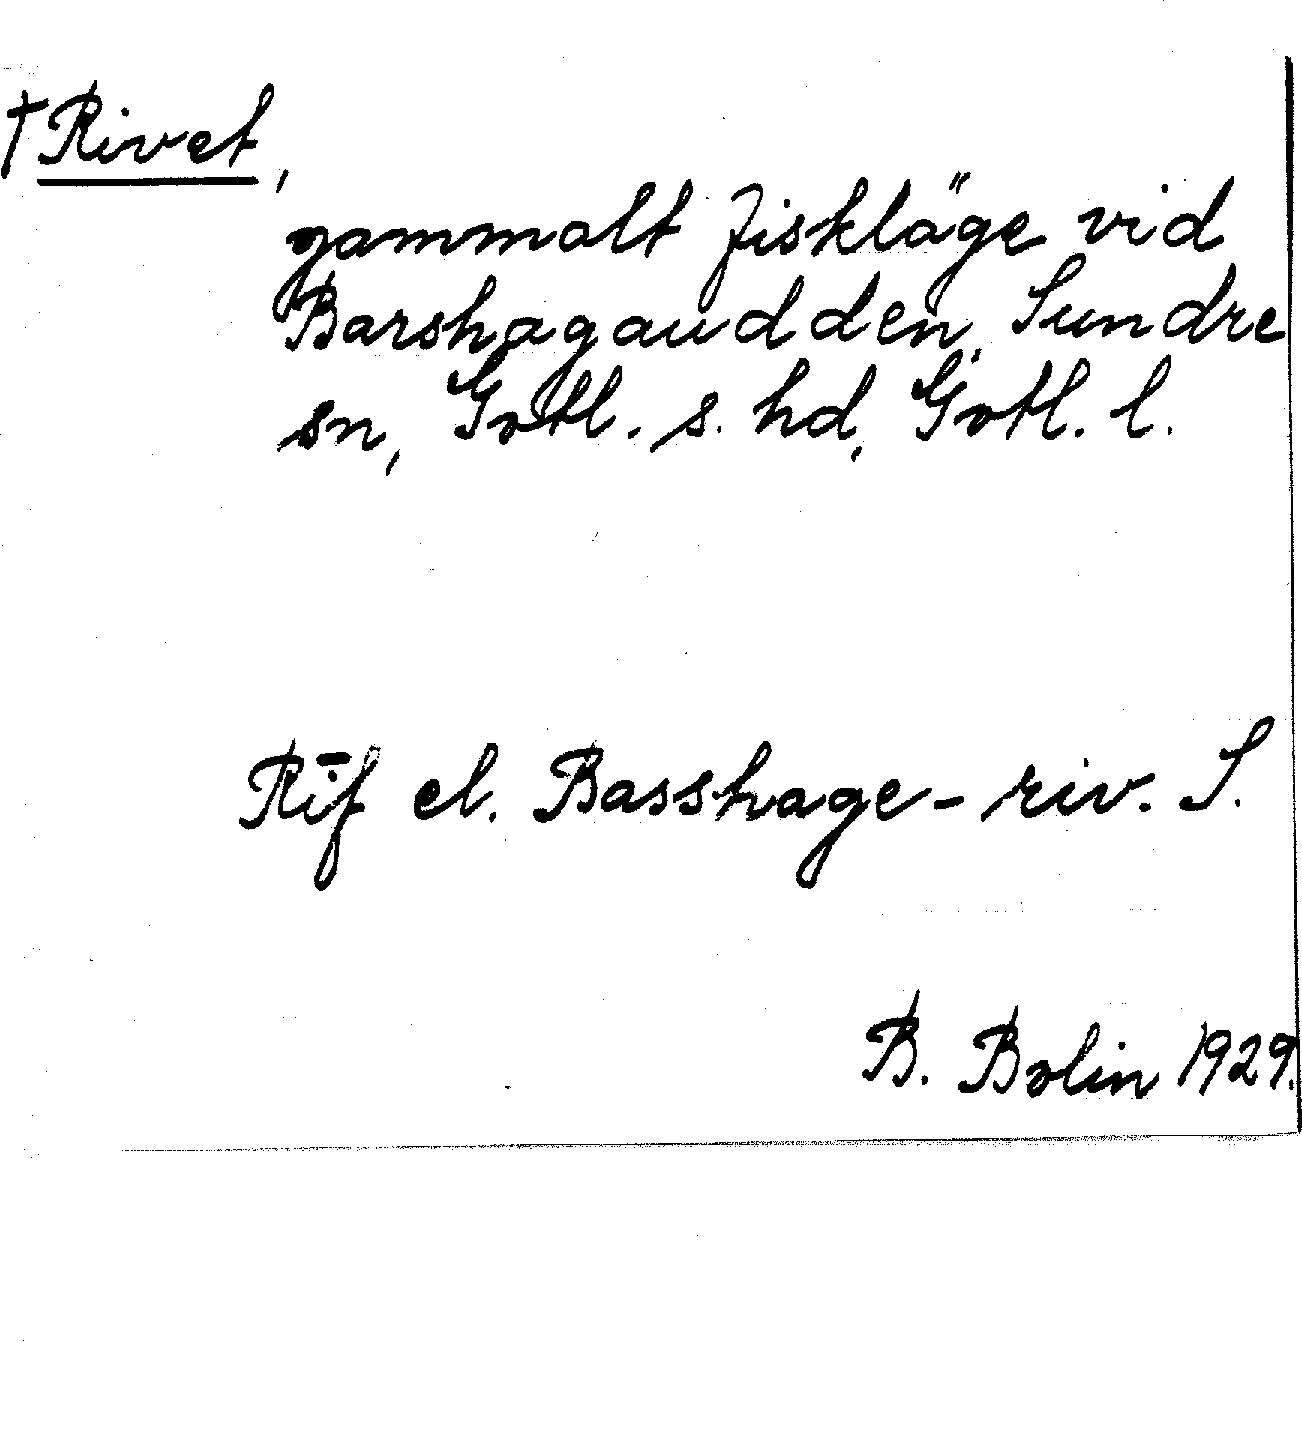 † Rivet,
gammalt fiskläge vid
Barshagaudden, Sundre
sn, Gotl. s. hd, Gotl. l.
Rīf el. Basshage-riv. S.
B. Bolin 1929.